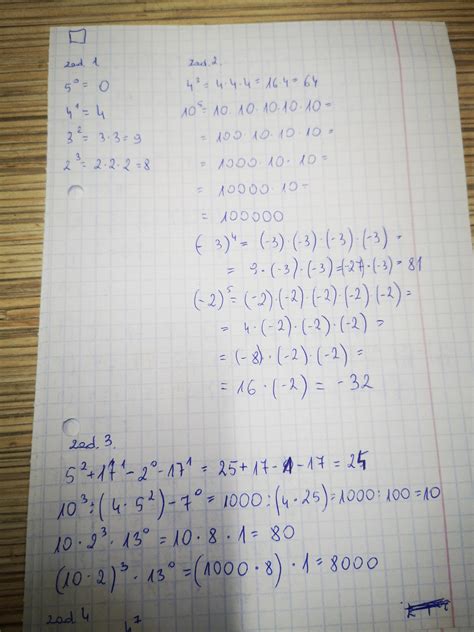 zad. 1
5⁰ = 0
4¹ = 4
3² = 3·3 = 9
2³ = 2·2·2 = 8
zad. 2.
4³ = 4·4·4 = 16·4 = 64
10⁵ = 10·10·10·10·10 =
= 100·10·10·10 =
= 1000·10·10 =
= 10000·10 =
= 100000
(-3)⁴ = (-3)·(-3)·(-3)·(-3) =
= 9·(-3)·(-3) = (-27)·(-3) = 81
(-2)⁵ = (-2)·(-2)·(-2)·(-2)·(-2) =
= 4·(-2)·(-2)·(-2) =
= (-8)·(-2)·(-2) =
= 16·(-2) = -32
zad. 3.
5² + 17¹ - 2⁰ - 17¹ = 25 + 17 - 1 - 17 = 25
10³ : (4·5²) - 7⁰ = 1000 : (4·25) = 1000 : 100 = 10
10·2³·13⁰ = 10·8·1 = 80
(10·2)³·13⁰ = (1000·8)·1 = 8000
zad 4